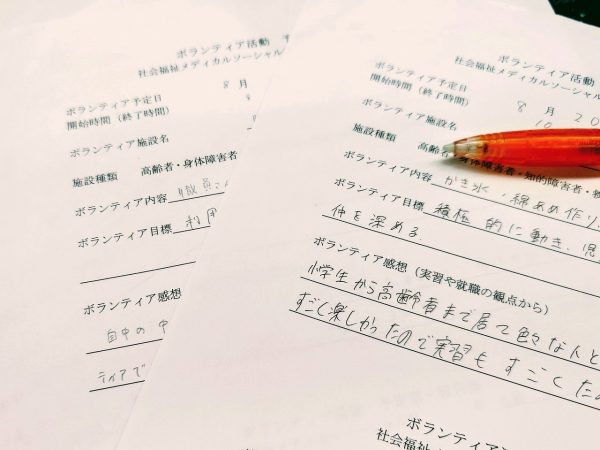 ボランティア活動
社会福祉メディカルソーシャル
ボランティア予定日 8 月
開始時間（終了時間）
ボランティア施設名
施設種類 高齢者・身体障害者
ボランティア内容 職員さん
ボランティア目標 利用
ボランティア感想
自中の中
ティアで
ボランティア活動
社会福祉メディカルソーシャル
ボランティア予定日 8 月 20
開始時間（終了時間） 10
ボランティア施設名
施設種類 高齢者・身体障害者・知的障害者・
ボランティア内容 かき氷・綿あめ作り
ボランティア目標 積極的に動き、児
仲を深める.
ボランティア感想（実習や就職の観点から）
小学生から高齢者まで居て色々な人と
すごく楽しかったので実習もすごくたの
ボランティア
社会福祉メディカル